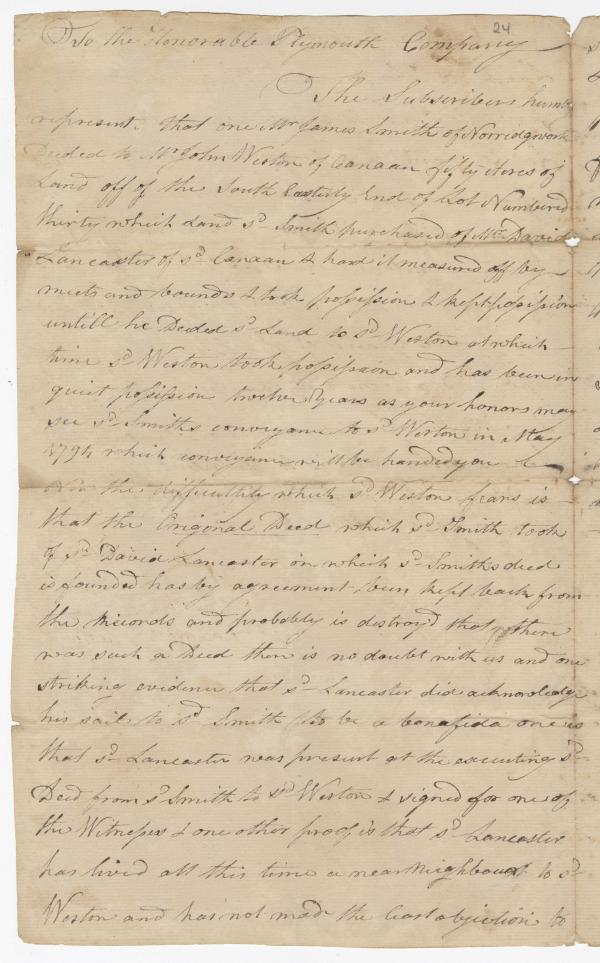 24
To the Honorable Plymouth Company
The Subscribers humb
represent. that one Mr James Smith of Norridgwork
Deeded to Mr John Weston of Canaan fifty Acres of
Land off of the South Easterly End of Lot Numbered
thirty which Land sd Smith purchased of Mr David
Lancaster of sd Canaan & had it measured off by
meets and bounds & took possission & kept possission
untill he Deeded sd Land to sd Weston at which
time sd Weston took possission and has been in
quiet possission twelve Years as your honors may
see sd Smiths conveyance to sd Weston in May
1794 which conveyance will be handed you
the difficultily which sd Weston fears is
that the Origonal Deed which sd Smith took
of sd David Lancaster on which sd Smiths deed
is founded has by agreement been kept back from
the Records and probably is destroyd that there
was such a Deed there is no doubt with us and one
striking evidence that sd Lancaster did acknowledge
his sail to sd Smith to be a bonafida one is
that sd Lancaster was present at the executing sd
Deed from sd Smith to sd Weston & signed for one of
the Witnesses & one other proof is that sd Lancaster
has lived all this time a near Neighbour to sd
Weston and has not made the least objiction to